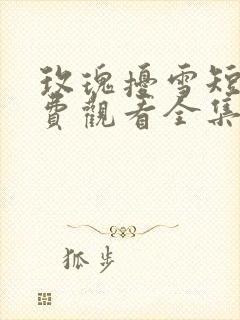 玫瑰擾雪短
費觀看全集
狐步